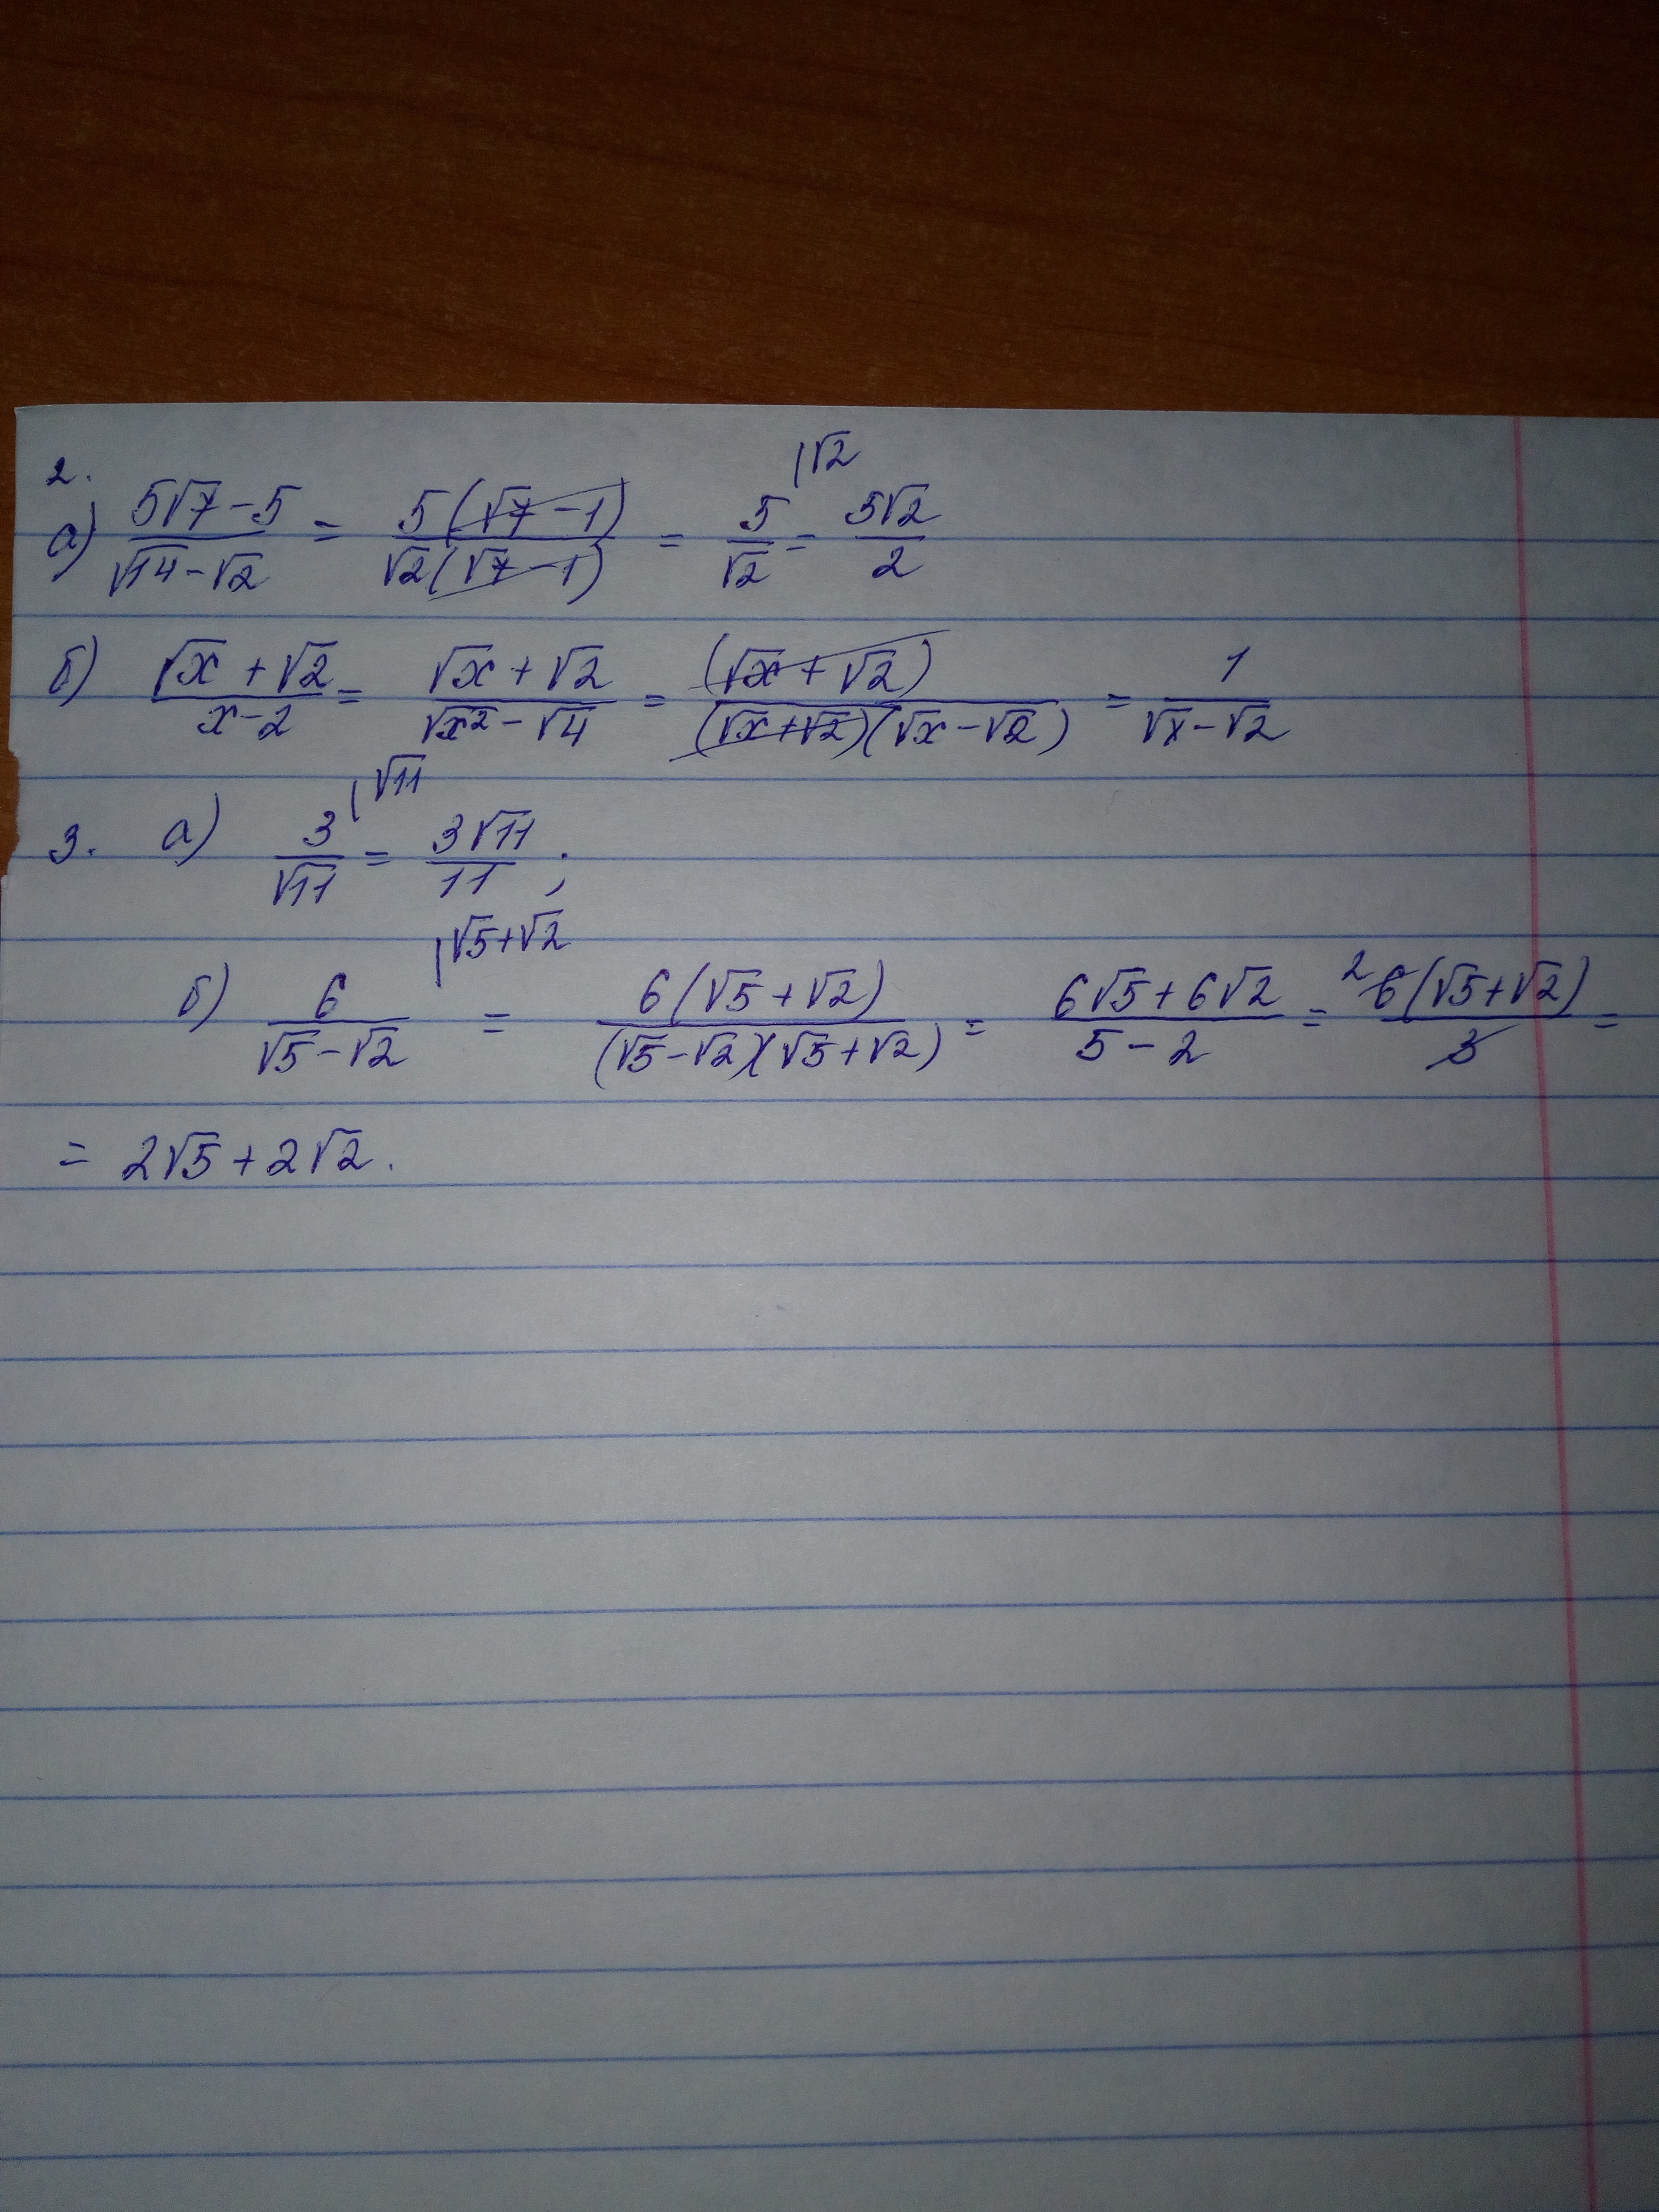 2.
|√2
а) (5√7-5)/(√14-√2) = 5(√7-1)/(√2(√7-1)) = 5/√2 = 5√2/2
б) (√x+√2)/(x-2) = (√x+√2)/(√x²-√4) = (√x+√2)/((√x+√2)(√x-√2)) = 1/(√x-√2)
|√11
3. а) 3/√11 = 3√11/11;
|√5+√2
б) 6/(√5-√2) = 6(√5+√2)/((√5-√2)(√5+√2)) = (6√5+6√2)/(5-2) = ²6(√5+√2)/3 =
= 2√5+2√2.